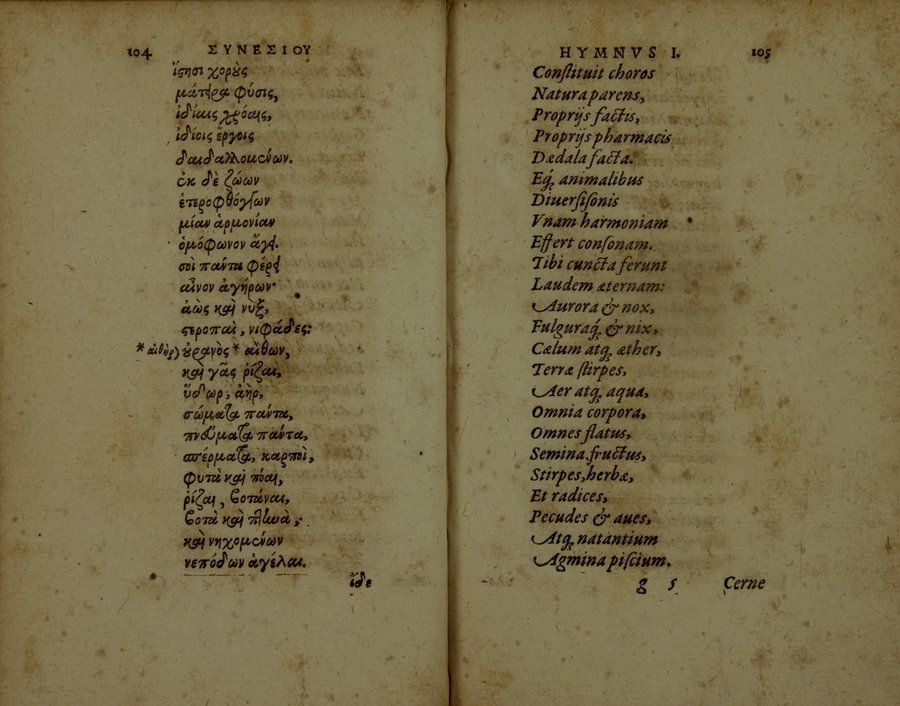 104 ΣΥΝΕΣΙΟΥ
ἵστησι χοροὺς
μάτερα φύσις,
ἰδίαις χρόαις,
ἰδίοις ἔργοις
δαιδαλλομένων.
ἐκ δὲ ζώων
ἑτεροφθόγγων
μίαν ἁρμονίαν
ὁμόφωνον ἄγει.
σοὶ πάντα φέρει
αἶνον ἀγήρων·
ἀὼς καὶ νὺξ,
στεροπαὶ, νιφάδες:
*αἰθὴρ) οὐρανὸς * αἴθων,
καὶ γᾶς ῥίζαι,
ὕδωρ, ἀὴρ,
σώματα πάντα,
πνεύματα πάντα,
σπέρματα, καρποὶ,
φυτὰ καὶ πόαι,
ῥίζαι, βοτάναι,
βοτὰ καὶ πτηνὰ,
καὶ νηχομένων
νεπόδων ἀγέλαι.
ἴδε
HYMNVS I. 105
Constituit choros
Natura parens,
Proprijs factis,
Proprijs pharmacis
Dædala facta.
Eq́; animalibus
Diuersisonis
Vnam harmoniam
Effert consonam.
Tibi cuncta ferunt
Laudem æternam:
Aurora & nox,
Fulguraq́; & nix,
Cælum atq; æther,
Terræ stirpes,
Aer atq; aqua,
Omnia corpora,
Omnes flatus,
Semina, fructus,
Stirpes, herbæ,
Et radices,
Pecudes & aues,
Atq; natantium
Agmina piscium.
g 5 Cerne